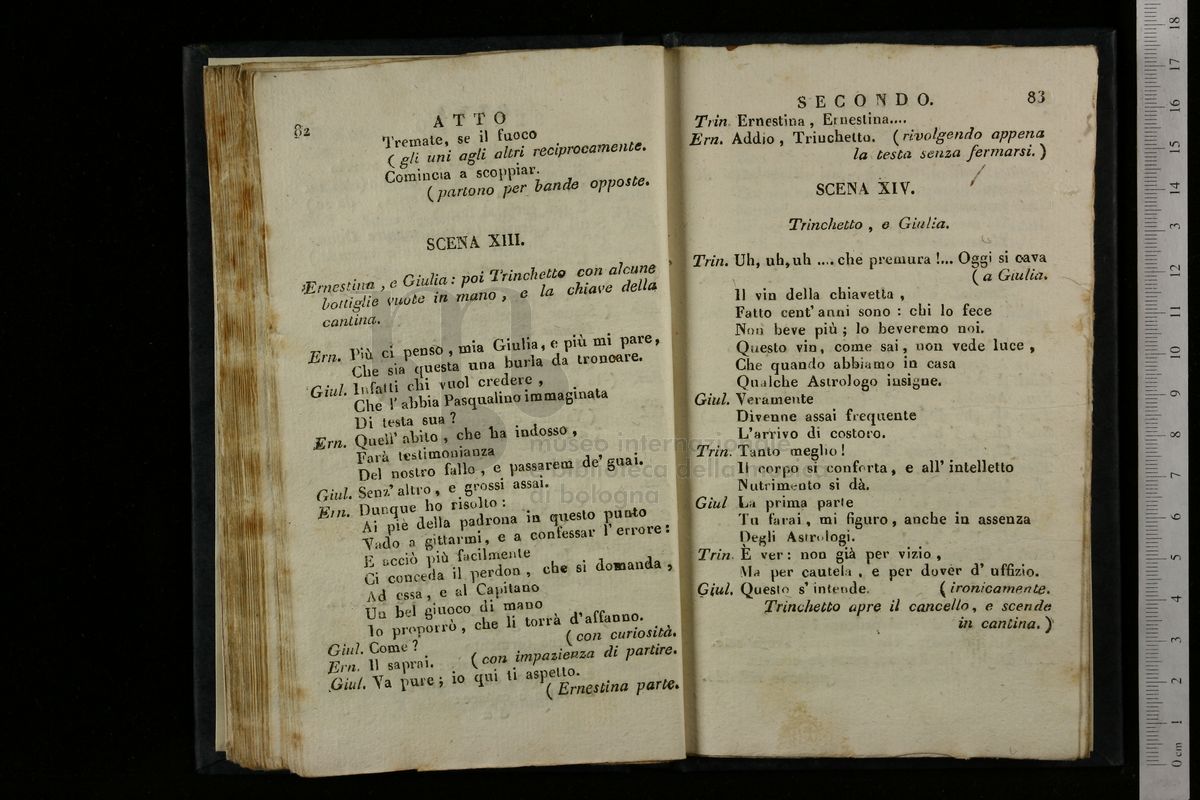 82
ATTO
Tremate, se il fuoco
( gli uni agli altri reciprocamente.
Comincia a scoppiar.
( partono per bande opposte.
SCENA XIII.
Ernestina, e Giulia: poi Trinchetto con alcune
bottiglie vuote in mano, e la chiave della
cantina.
Ern. Più ci penso, mia Giulia, e più mi pare,
Che sia questa una burla da troncare.
Giul. Infatti chi vuol credere,
Che l'abbia Pasqualino immaginata
Di testa sua?
Ern. Quell' abito, che ha indosso,
Farà testimonianza
Del nostro fallo, e passarem de' guai.
Giul. Senz' altro, e grossi assai.
Ern. Dunque ho risolto:
Ai piè della padrona in questo punto
Vado a gittarmi, e a confessar l' errore:
E acciò più facilmente
Ci conceda il perdon, che si domanda,
Ad essa, e al Capitano
Un bel giuoco di mano
Io proporrò, che li torrà d'affanno.
Giul. Come? ( con curiosità.
Ern. Il saprai. ( con impazienza di partire.
Giul. Va pure; io qui ti aspetto.
( Ernestina parte.
SECONDO. 83
Trin. Ernestina, Ernestina....
Ern. Addio, Triuchetto. ( rivolgendo appena
la testa senza fermarsi. )
SCENA XIV.
Trinchetto, e Giulia.
Trin. Uh, uh, uh .... che premura!... Oggi si cava
( a Giulia.
Il vin della chiavetta,
Fatto cent' anni sono: chi lo fece
Non beve più; lo beveremo noi.
Questo vin, come sai, non vede luce,
Che quando abbiamo in casa
Qualche Astrologo insigne.
Giul. Veramente
Divenne assai frequente
L'arrivo di costoro.
Trin. Tanto meglio!
Il corpo si conforta, e all' intelletto
Nutrimento si dà.
Giul La prima parte
Tu farai, mi figuro, anche in assenza
Degli Astrologi.
Trin. È ver: non già per vizio,
Ma per cautela, e per dover d' uffizio.
Giul. Questo s' intende. ( ironicamente.
Trinchetto apre il cancello, e scende
in cantina. )
museo internazionale
e biblioteca della musica
di bologna
0 cm 1 2 3 4 5 6 7 8 9 10 11 12 13 14 15 16 17 18